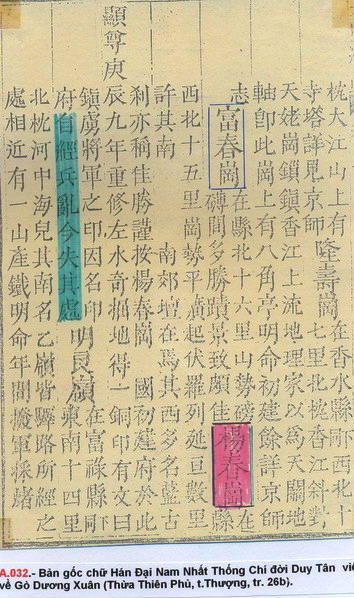 枕大江山上有
寺塔詳見京師
隆壽崗
在香水縣𨛗西北十
七里北枕香江斜對
天姥崗鎖鎮香江上流地理家以爲天關地
軸卽此崗上有八角亭明命初建餘詳京師
志
富春崗
在縣北十六里山勢磅
礡間多勝蹟景致頗佳
楊春崗
在縣
西北十五里崗勢平廣起伏羅列延亘數里
許其南 南郊壇在焉其西多名藍古
刹亦稱佳勝謹按楊春崗 國初建府於此
顯尊庚
辰九年重修左水奇掘地得一銅印有文曰
鎮虜將軍之印因名印
府自經兵亂今失其處
明良嶺
在富祿縣𨛗
東南十四里
北枕河中海兒其南名乙嶺皆驛路所經之
處相近有一山產鐵明命年間撥軍採煑
A.032.- Bản gốc chữ Hán Đại Nam Nhất Thống Chí đời Duy Tân viế
về Gò Dương Xuân (Thừa Thiên Phủ, t.Thượng, tr. 26b).